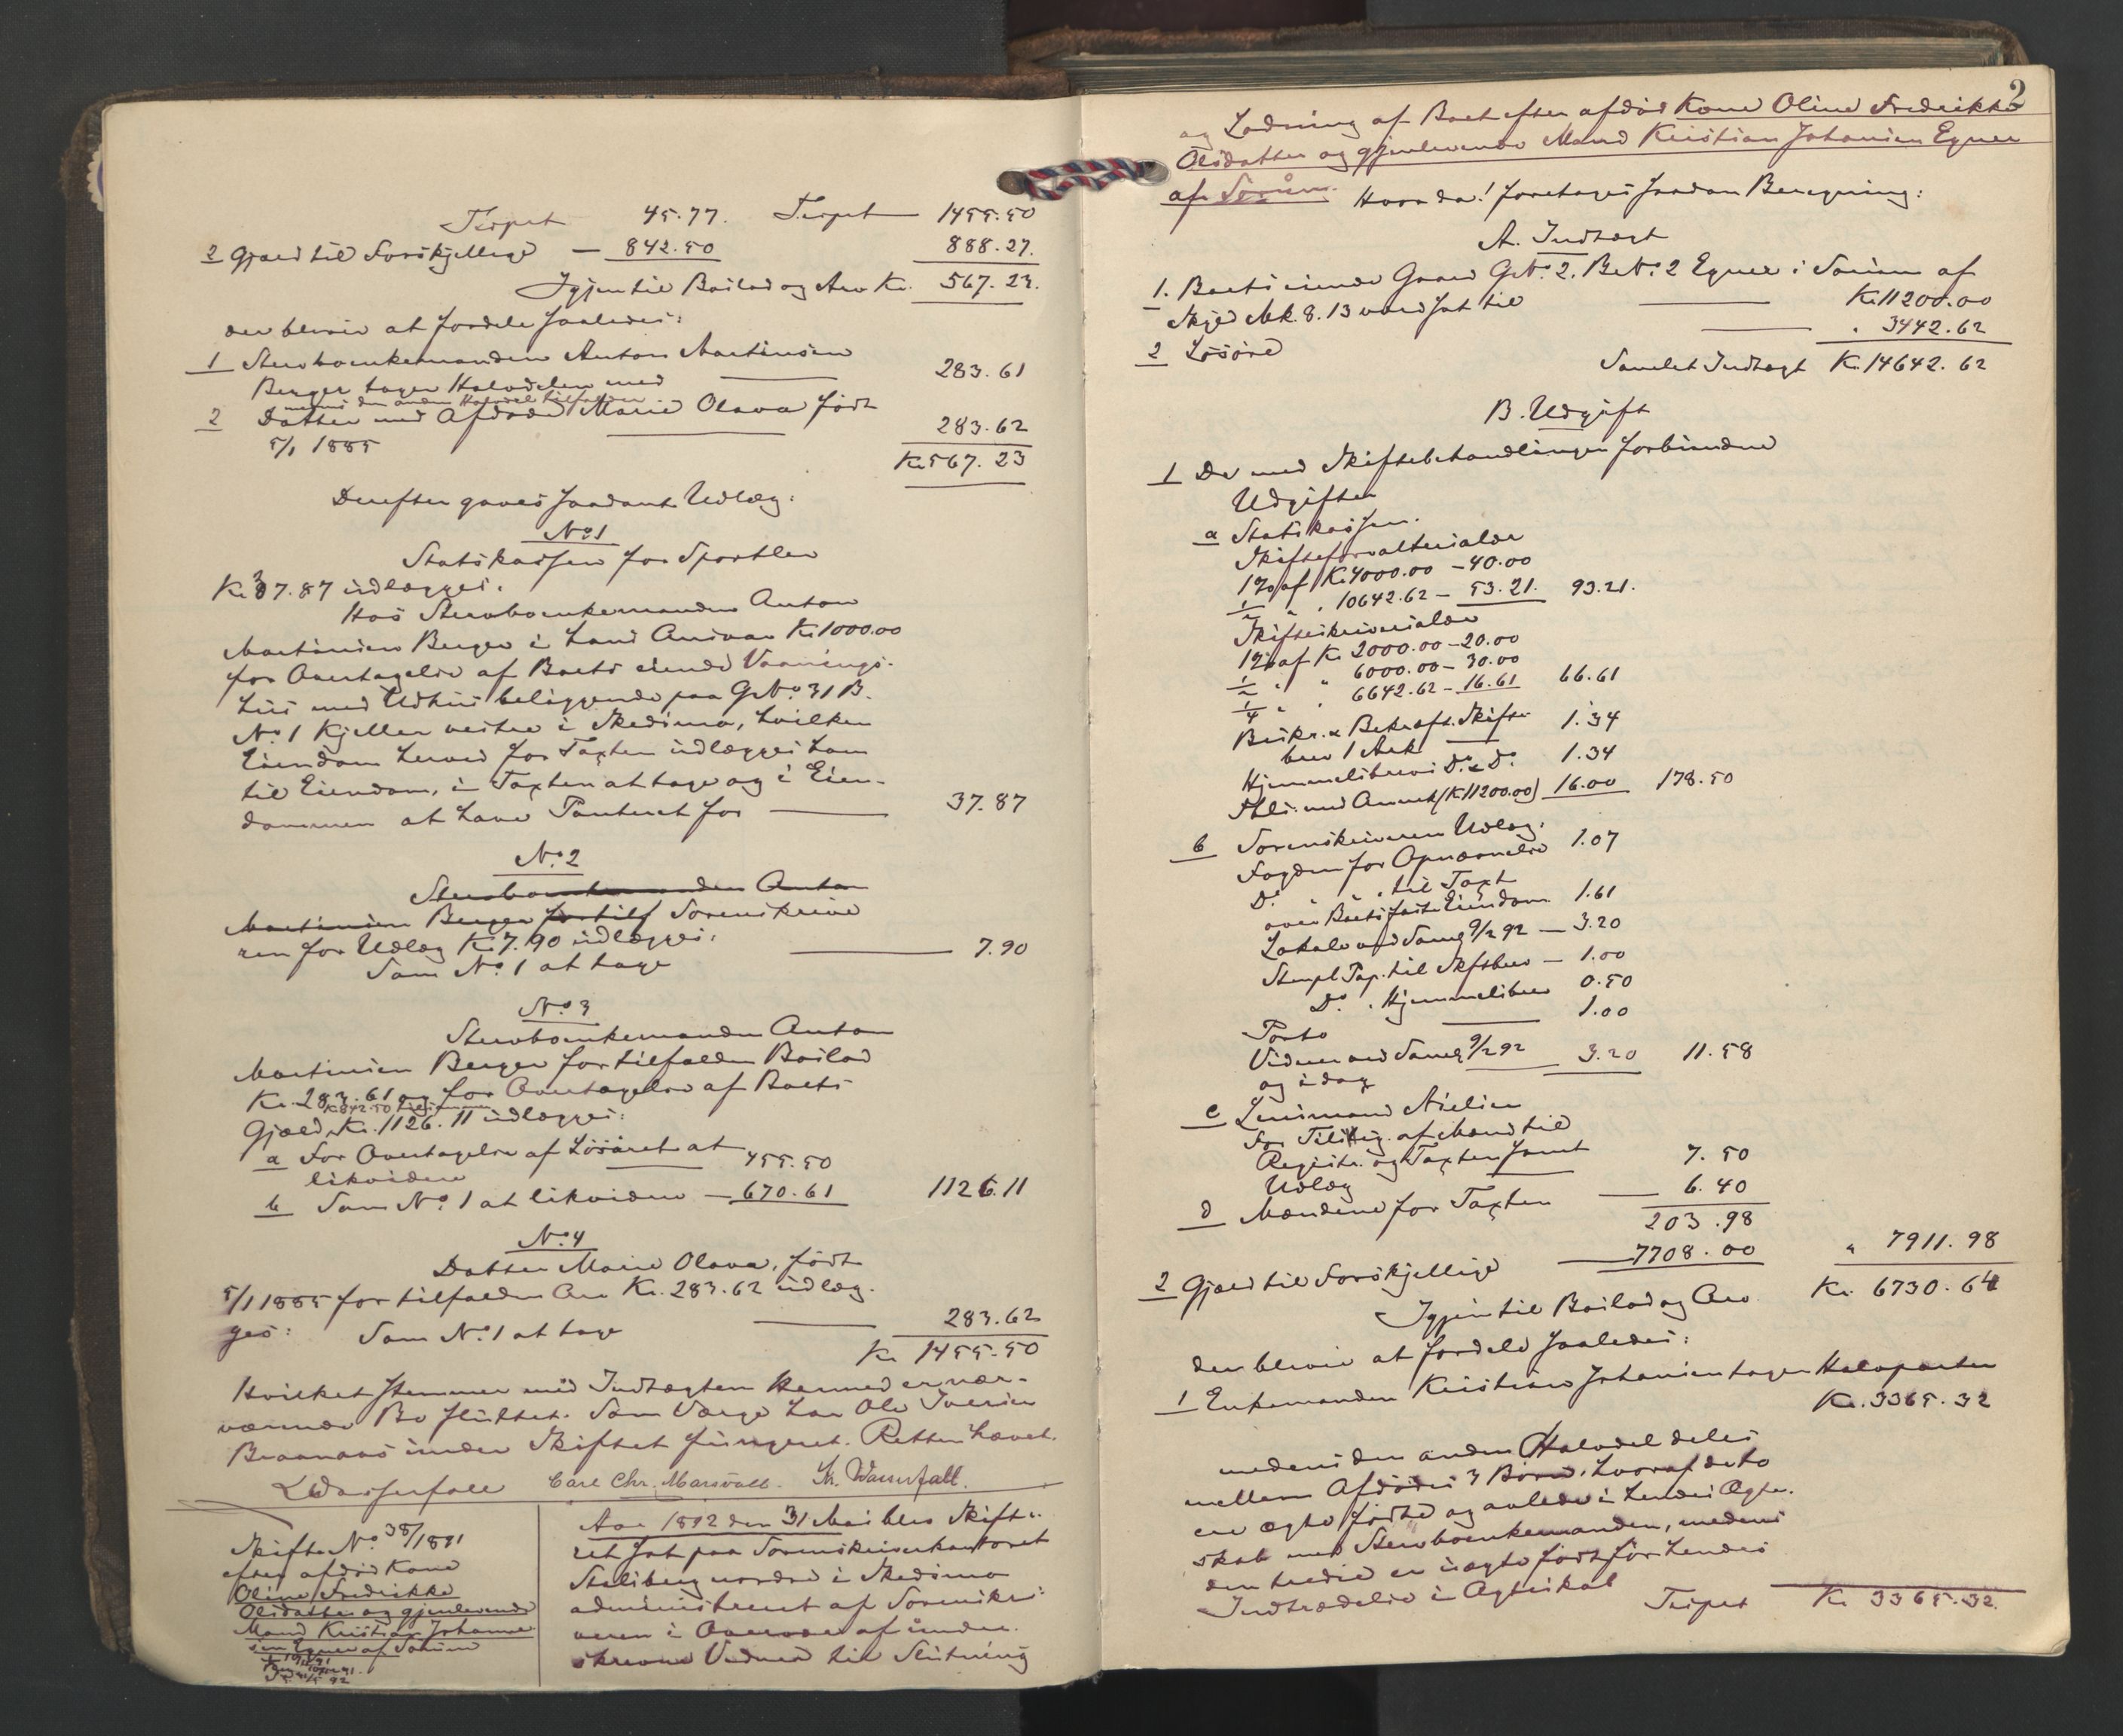 Tspt 45.77. Tspt 1455.50
2 Gjæld til Forskjellige — 842.50 888.27.
Igjen til Boslod og Arv Kr. 567.23.
der blive at fordele saaledes:
1 Stervboenkemanden Anton Martinsen
Berger tager Halvdelen med 283.61
mens den anden Halvdel tilfalder
2 Datter med Afdøde Marie Olava født
5/1 1885 283.62
Kr 567.23
Derefter gaves saadant Udlæg:
No. 1
Statskassen for Sportler
Kr 37.87 udlægges.
Hos Stervboenkemanden Anton
Martinsen Berger i hans Ansvar Kr 1000.00
for Overtagelse af Boets eiende Vaanings-
hus med Udhus beliggende paa GNo. 31 B.
No. 1 Kjeller vestre i Skedsmo, hvilken
Eiendom herved for Taxten udlægges ham
til Eiendom, i Taxten at tage og i Eien-
dommen at have Panteret for 37.87
No. 2
Stervboenkemanden Anton
Martinsen Berger for tilf Sorenskrive
ren for Udlæg Kr 7.90 udlægges:
Som No. 1 at tage 7.90
No. 3
Stervboenkemanden Anton
Martinsen Berger for tilfalden Boslod
Kr. 283.61 og for Overtagelse af Boets
Kr 842.50 tilsammen
Gjæld, Kr. 1126.11 udlægges:
a For Overtagelse af Løsøret at
likvidere 455.50
b Som No. 1 at likvidere — 670.61 1126.11
No. 4
Datter Marie Olava, født
5/1 1885 for tilfalden Arv Kr. 283.62 udlæg-
ges: Som No. 1 at tage 283.62
Kr 1455.50
Hvilket stemmer med Indtægten. Hermed er nær-
værende Bo sluttet. Som Værge har Ole Iversen
Braanaas under Skiftet fungeret. Retten hævet.
LWasserfall Carl Chr. Marsvall. K. Wasserfall.
Skifte No. 38/1891
efter afdød Kone
Oline Fredrikke
Olsdatter og gjenlevende
Mand Kristian Johanne-
sen Egner af Sørum
Aar 1892 den 31 Mai blev Skifte-
ret sat paa Sorenskriverkontoret
Stalsberg nordre i Skedsmo
administreret af Sorenskri-
veren i Overvær af under-
skrevne Vidner til Slutning
2
og Lodning af Boet efter afdød Kone Oline Fredrikke
Olsdatter og gjenlevende Mand Kristian Johansen Egner
af Sørum. Hvorda! foretages saadan Beregning:
A. Indtægt
1. Boets eiende Gaard GNo. 2. BNo. 2 Egner i Sørum af
Skyld Mk. 8.13 værdsat til Kr. 11200.00
2 Løsøre " 3442.62
Samlet Indtægt Kr. 14642.62
B. Udgift
1 De med Skiftebehandlingen forbundne
Udgifter
a Statskassen.
Skifteforvaltersalær
1% af Kr. 4000.00 — 40.00
1/2 " " 10642.62 — 53.21. 93.21.
Skifteskriversalær
1% af Kr 2000.00 — 20.00
1/2 " " 6000.00 — 30.00
1/4 " " 6642.62 — 16.61 66.61
Beskr. & Bekræft. Skifte-
brev 1 Ark 1.34
Hjemmelsbrev Do. & Do. 1.34
Thl: med Annet (Kr 11200.00) 16.00 178.50
b Sorenskriveren Udlæg:
Fogden for Opnævnelse 1.07
Do. " " til Taxt
over Boets faste Eiendom 1.61
Lokale ved Saml. 9/2 92 — 3.20
Stempl. Pap. til Skftbrev — 1.00
Do. " Hjemmelsbrev 0.50
Porto 1.00
Vidner ved Saml. 9/2 92
og idag 3.20 11.58
c Lensmand Nielsen
for Tilsig. af Mænd til
Registr. og Taxten samt
Udlæg 7.50
d Mændene for Taxten 6.40
203.98
2 Gjæld til Forskjellige 7708.00 " 7911.98
Igjen til Boslod og Arv Kr. 6730.64
der blive at fordele saaledes:
1 Enkemanden Kristian Johansen tager Halvparten
Kr. 3365.32
medens den anden Halvdel deles
mellem Afdødes 3 Børn, hvoraf de to
ere ægte fødte og avlede i hendes Ægte-
skab med Stervboenkemanden, medens
den tredie er uægte født før hendes
Indtrædelse i Ægteskab
Tspt Kr 3365.32.